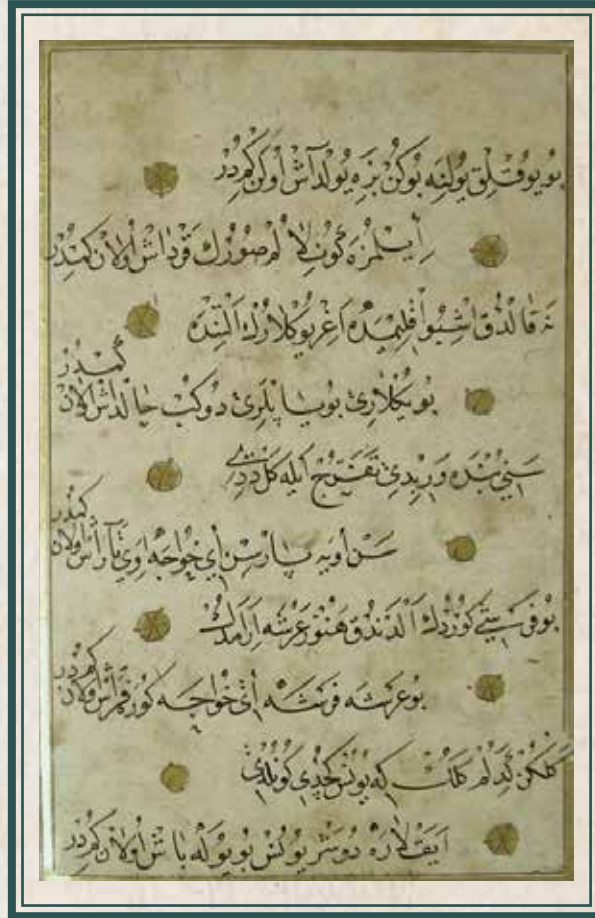 بو يوقلق يولنه بوكن بزه يولداش اولن كمدر
ايلمزه كونلالم صورك قرداش اولان كمدر
نه قالدق اشبو اقليمده اغر يوكلارك التنده
بو يكلاري بو ياپلري دوكب حالداش اولان كمدر
سني بنده ويربدي تفرج ايله كل ددي
سن اويه ياپارسن اي خواجه اولان كمدر
الدندق هنوز عرشه ارامدك
بو عرشه فرشه اي خواجه كور فراش اولان كمدر
كلكن كدلم كلك كه يونس كچدي
ايقلاره دوشر يونس بو يوله باش اولان كمدر